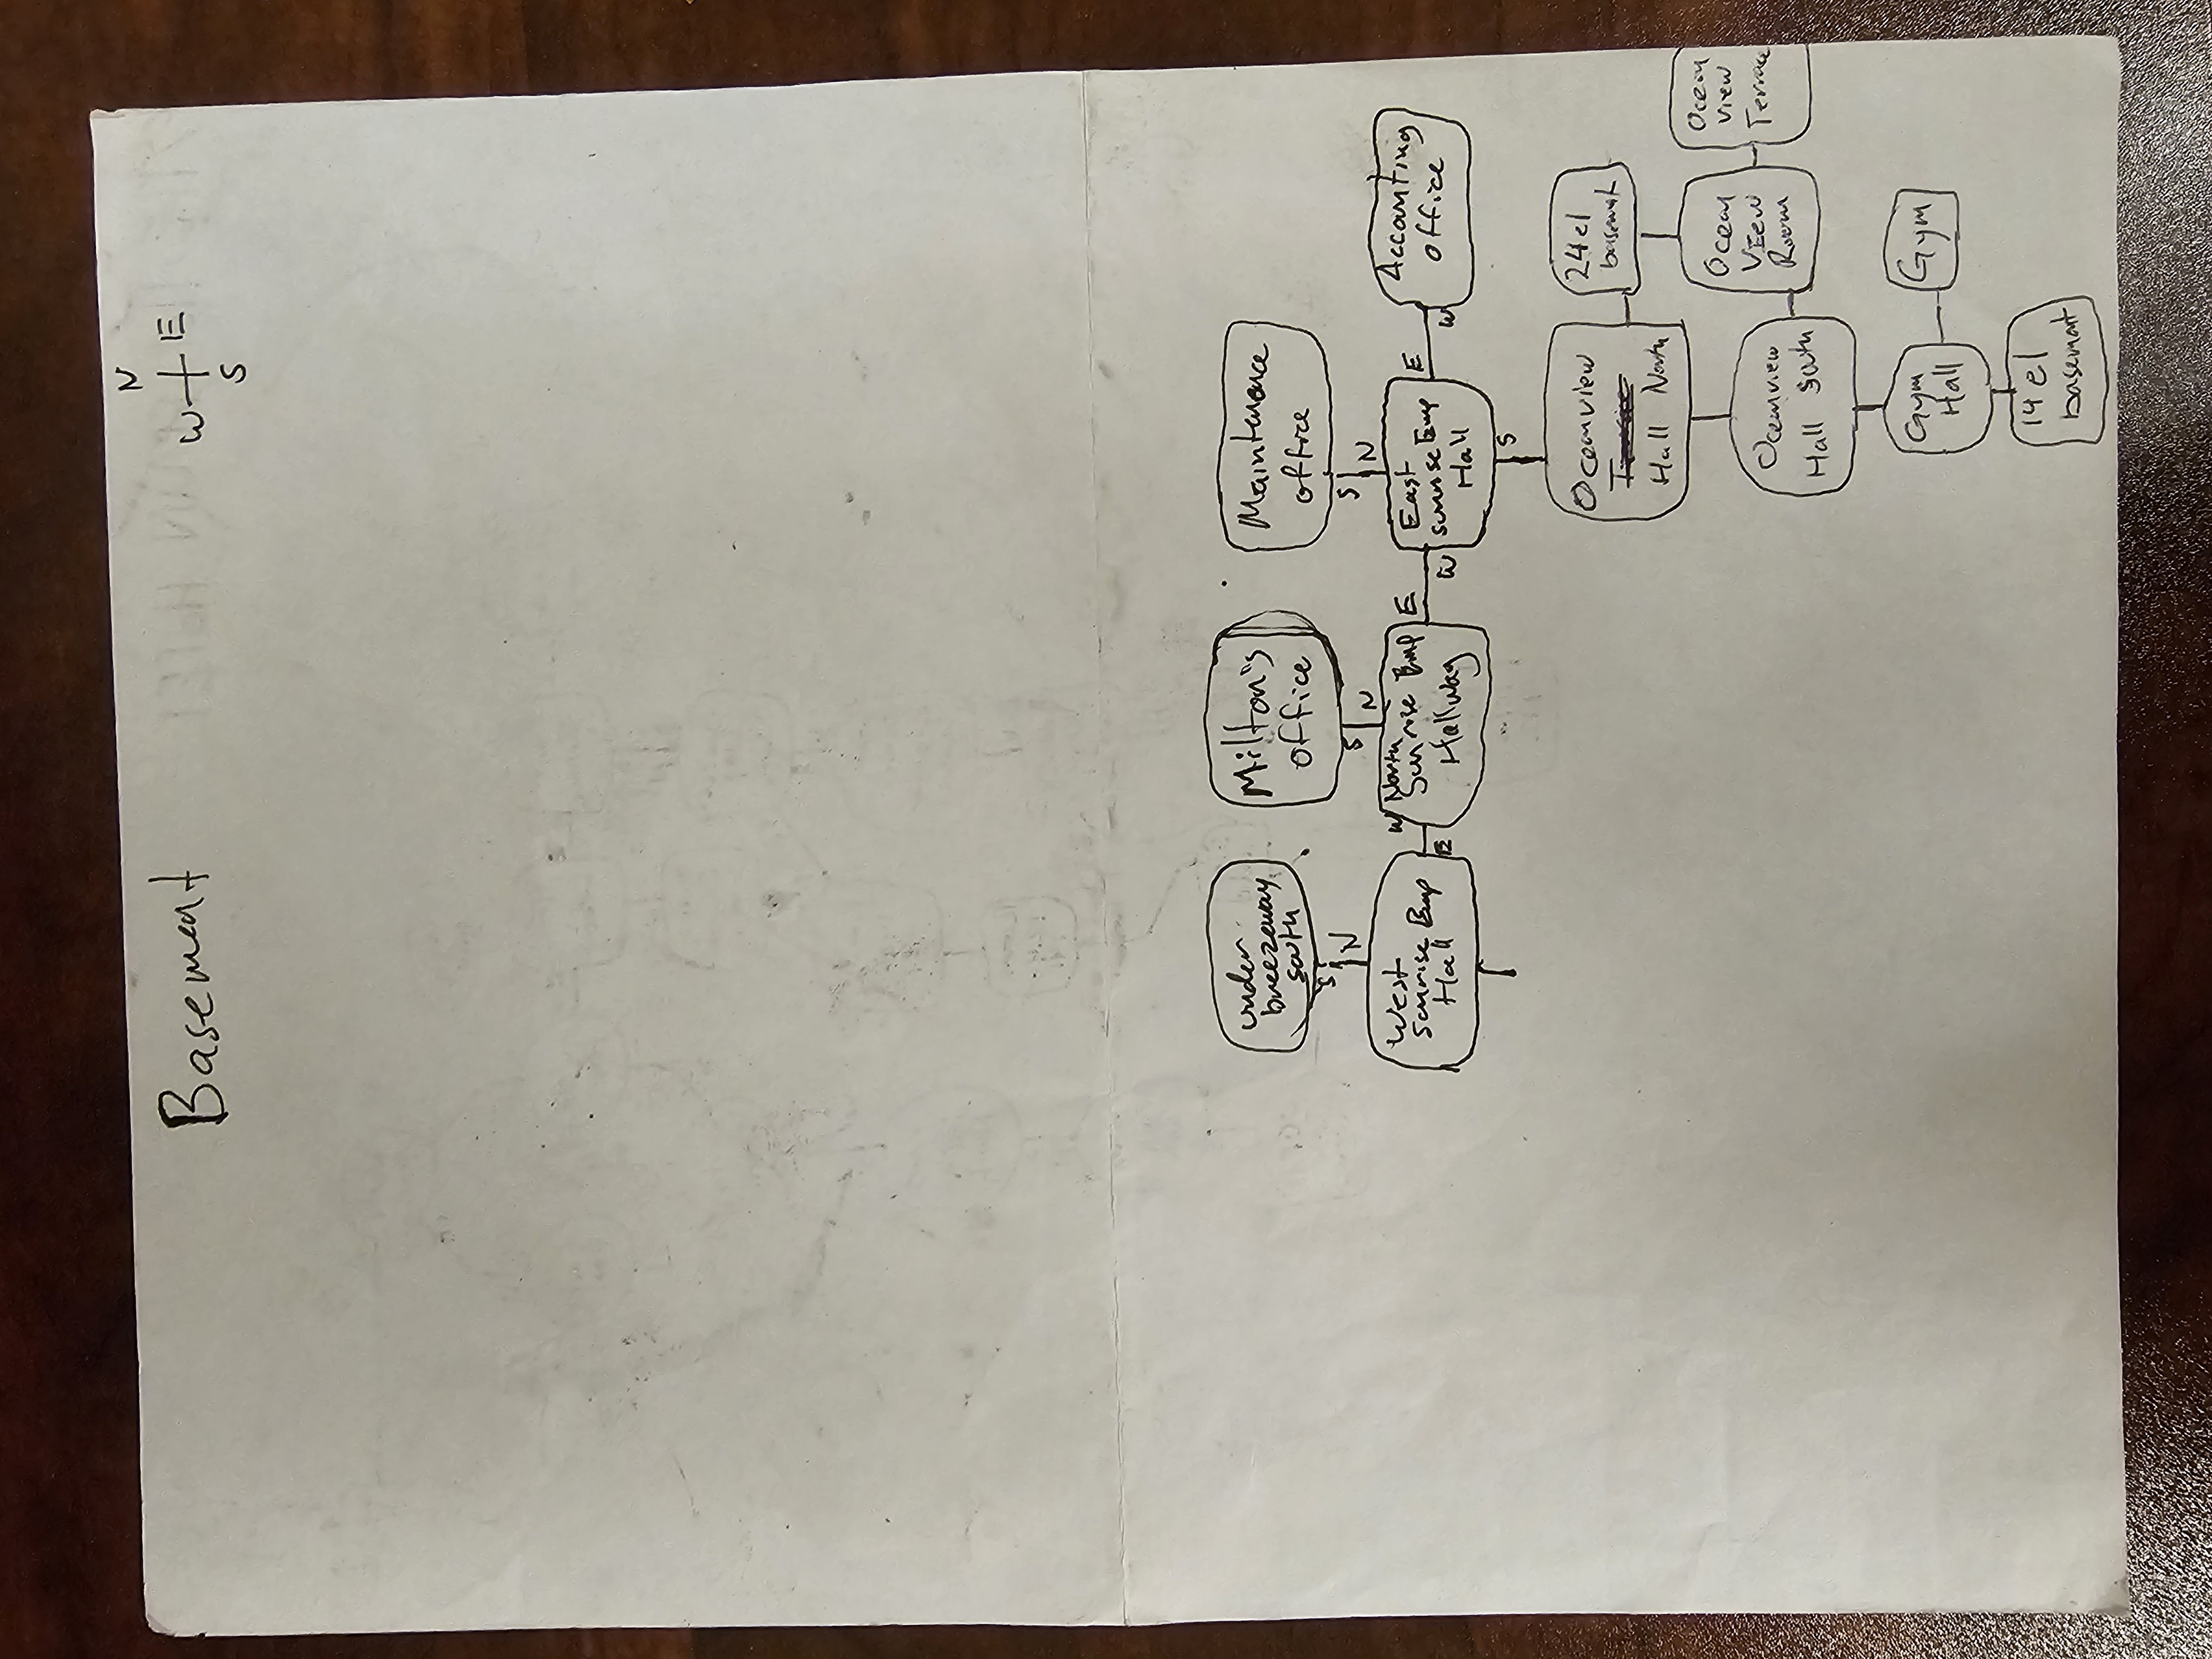 Basement
N
W E
S
under
breezeway
south
S
N
Milton's
office
S
N
Maintenance
office
S
N
West
Sunrise Emp
Hall
E
W
North
Sunrise Emp
Hallway
E
W
East
Sunrise Emp
Hall
E
W
S
Accounting
office
Oceanview
Hall North
24 el
basement
Ocean
View
Room
Ocean
view
Terrace
Oceanview
Hall South
Gym
Hall
Gym
14 el
basement